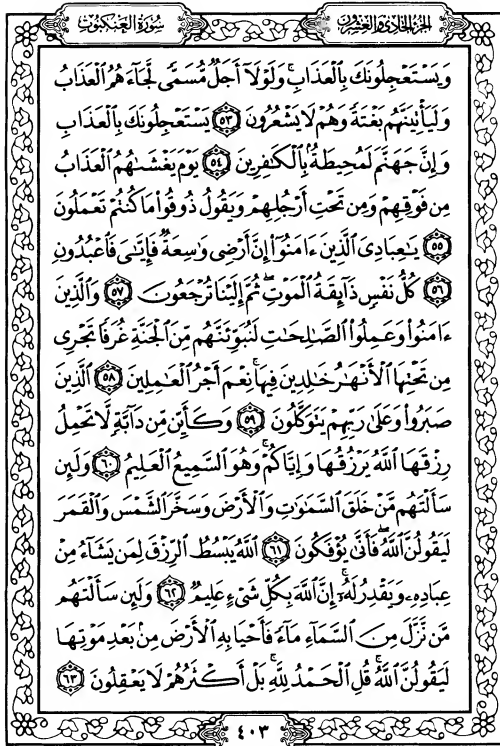 سُورَةُ العَنكَبُوتِ
الجزء الحادي والعشرون
وَيَسْتَعْجِلُونَكَ بِالْعَذَابِ وَلَوْلَا أَجَلٌ مُّسَمًّى لَّجَاءَهُمُ الْعَذَابُ
وَلَيَأْتِيَنَّهُم بَغْتَةً وَهُمْ لَا يَشْعُرُونَ ٥٣ يَسْتَعْجِلُونَكَ بِالْعَذَابِ
وَإِنَّ جَهَنَّمَ لَمُحِيطَةٌ بِالْكَافِرِينَ ٥٤ يَوْمَ يَغْشَاهُمُ الْعَذَابُ
مِن فَوْقِهِمْ وَمِن تَحْتِ أَرْجُلِهِمْ وَيَقُولُ ذُوقُوا مَا كُنتُمْ تَعْمَلُونَ
٥٥ يَاعِبَادِيَ الَّذِينَ ءَامَنُوا إِنَّ أَرْضِي وَاسِعَةٌ فَإِيَّايَ فَاعْبُدُونِ
٥٦ كُلُّ نَفْسٍ ذَائِقَةُ الْمَوْتِ ثُمَّ إِلَيْنَا تُرْجَعُونَ ٥٧ وَالَّذِينَ
ءَامَنُوا وَعَمِلُوا الصَّالِحَاتِ لَنُبَوِّئَنَّهُم مِّنَ الْجَنَّةِ غُرَفًا تَجْرِي
مِن تَحْتِهَا الْأَنْهَارُ خَالِدِينَ فِيهَا نِعْمَ أَجْرُ الْعَامِلِينَ ٥٨ الَّذِينَ
صَبَرُوا وَعَلَى رَبِّهِمْ يَتَوَكَّلُونَ ٥٩ وَكَأَيِّن مِّن دَابَّةٍ لَّا تَحْمِلُ
رِزْقَهَا اللَّهُ يَرْزُقُهَا وَإِيَّاكُمْ وَهُوَ السَّمِيعُ الْعَلِيمُ ٦٠ وَلَئِن
سَأَلْتَهُم مَّنْ خَلَقَ السَّمَاوَاتِ وَالْأَرْضَ وَسَخَّرَ الشَّمْسَ وَالْقَمَرَ
لَيَقُولُنَّ اللَّهُ فَأَنَّى يُؤْفَكُونَ ٦١ اللَّهُ يَبْسُطُ الرِّزْقَ لِمَن يَشَاءُ مِنْ
عِبَادِهِ وَيَقْدِرُ لَهُ إِنَّ اللَّهَ بِكُلِّ شَيْءٍ عَلِيمٌ ٦٢ وَلَئِن سَأَلْتَهُم
مَّن نَّزَّلَ مِنَ السَّمَاءِ مَاءً فَأَحْيَا بِهِ الْأَرْضَ مِن بَعْدِ مَوْتِهَا
لَيَقُولُنَّ اللَّهُ قُلِ الْحَمْدُ لِلَّهِ بَلْ أَكْثَرُهُمْ لَا يَعْقِلُونَ ٦٣
٤٠٣